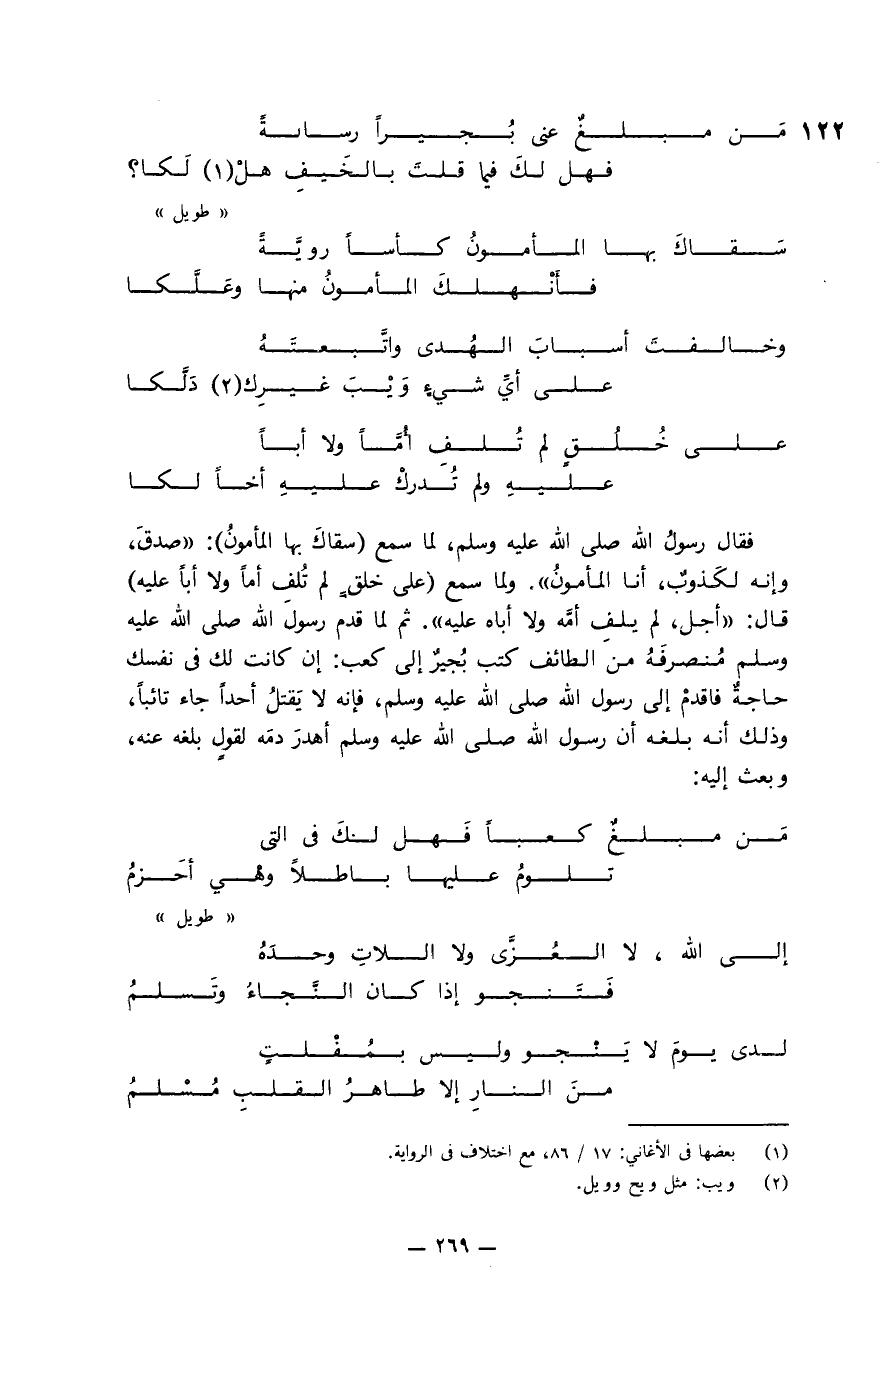 ١٢٢ مَن مبلغٌ عنى بُجيراً رسالةً
فهل لكَ فيما قلتَ بالخَيفِ هلْ(١) لَكا؟
« طويل »
سَقاكَ بها المأمونُ كأساً رويَّةً
فأنْهلكَ المأمونُ منها وعَلَّكا
وخالفتَ أسبابَ الهُدى واتَّبعتَهُ
على أيِّ شيءٍ وَيْبَ غيرِك(٢) دَلَّكا
على خُلُقٍ لم تُلفِ أُمَّاً ولا أباً
عليهِ ولم تُدركْ عليهِ أخاً لكا
فقال رسولُ الله صلى الله عليه وسلم، لما سمع (سقاكَ بها المأمونُ): «صدقَ،
وإنه لكَذوبٌ، أنا المأمونُ». ولما سمع (على خلقٍ لم تُلفِ أماً ولا أباً عليه)
قال: «أجل، لم يلفِ أمَّه ولا أباه عليه». ثم لما قدم رسول الله صلى الله عليه
وسلم مُنصرفَهُ من الطائف كتب بُجيرٌ إلى كعب: إن كانت لك فى نفسك
حاجةٌ فاقدمْ إلى رسول الله صلى الله عليه وسلم، فإنه لا يَقتلُ أحداً جاء تائباً،
وذلك أنه بلغه أن رسول الله صلى الله عليه وسلم أهدرَ دمَه لقولٍ بلغه عنه،
وبعث إليه:
مَن مبلغٌ كعباً فَهل لنكَ فى التى
تلومُ عليها باطلاً وهْي أحَزمُ
« طويل »
إلى الله ، لا العُزَّى ولا اللاتِ وحدَهُ
فَتَنجو إذا كان النَّجاءُ وتَسلمُ
لدى يومَ لا يَنْجو وليس بمُفْلتٍ
منَ النارِ إلا طاهرُ القلبِ مُسْلمُ
(١) بعضها فى الأغاني: ١٧ / ٨٦، مع اختلاف فى الرواية.
(٢) ويب: مثل ويح وويل.
— ٢٦٩ —